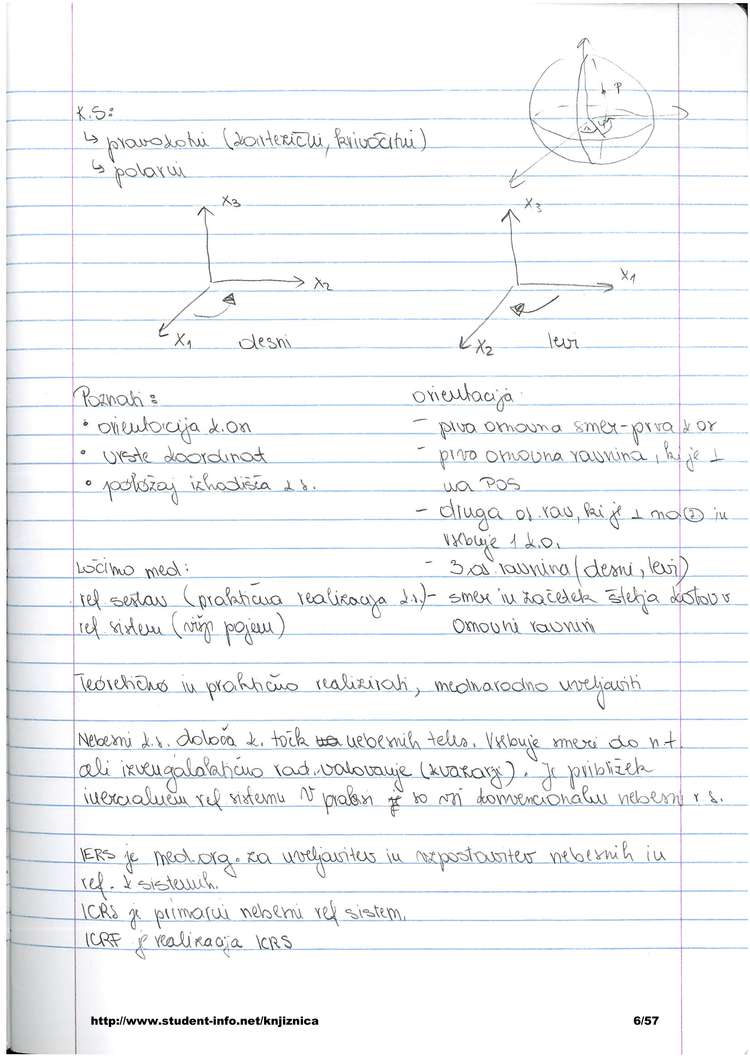 K.S:
↳ pravokotni (kartezični, krivočrtni)
↳ polarni
P
X3
X2
X1
desni
X3
X1
X2
levi
Poznati:
• orientacija k. osi
• vrste koordinat
• položaj izhodišča k s.
orientacija:
- prva osnovna smer - prva k os
- prva osnovna ravnina, ki je ⊥
na POS
- druga os. rav, ki je ⊥ na ② in
vsebuje 1 k.o.
- 3. os ravnina (desni, levi)
- smer in začetek štetja kotov v
osnovni ravnini
Ločimo med:
ref sestav (praktična realizacija k.s)
ref sistem (višji pojem)
Teoretično in praktično realizirati, mednarodno uveljaviti
Nebesni k.s. določa k. točk nebesnih teles. Vsebuje smeri do n t.
ali izvengalaktično rad. valovanje (kvazarji). Je približek
inercialnem ref sistemu V praksi so vsi konvencionalni nebesni r s.
IERS je med. org. za uveljavitev in vzpostavitev nebesnih in
ref. k sistemih.
ICRS je primarni nebesni ref sistem.
ICRF je realizacija ICRS
http://www.student-info.net/knjiznica
6/57